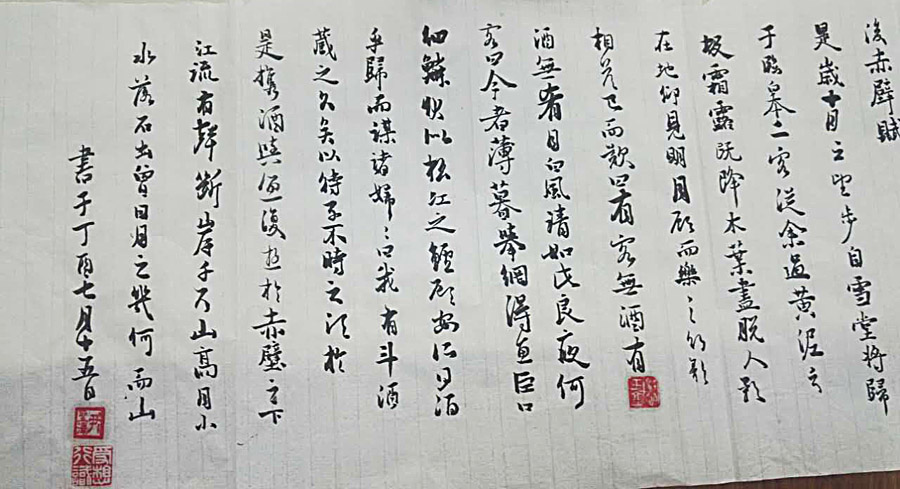 後赤壁賦
是歲十月之望步自雪堂將歸
于臨皋二客從余過黃泥之
坂霜露既降木葉盡脫人影
在地仰見明月顧而樂之行歌
相答已而歎曰有客無酒有
酒無肴月白風清如此良夜何
客曰今者薄暮舉網得魚巨口
細鱗狀似松江之鱸顧安所得酒
乎歸而謀諸婦〻曰我有斗酒
藏之久矣以待子不時之須於
是攜酒與魚復遊於赤壁之下
江流有聲斷岸千尺山高月小
水落石出曾日月之幾何而山
書于丁酉七月十五日
受想行識